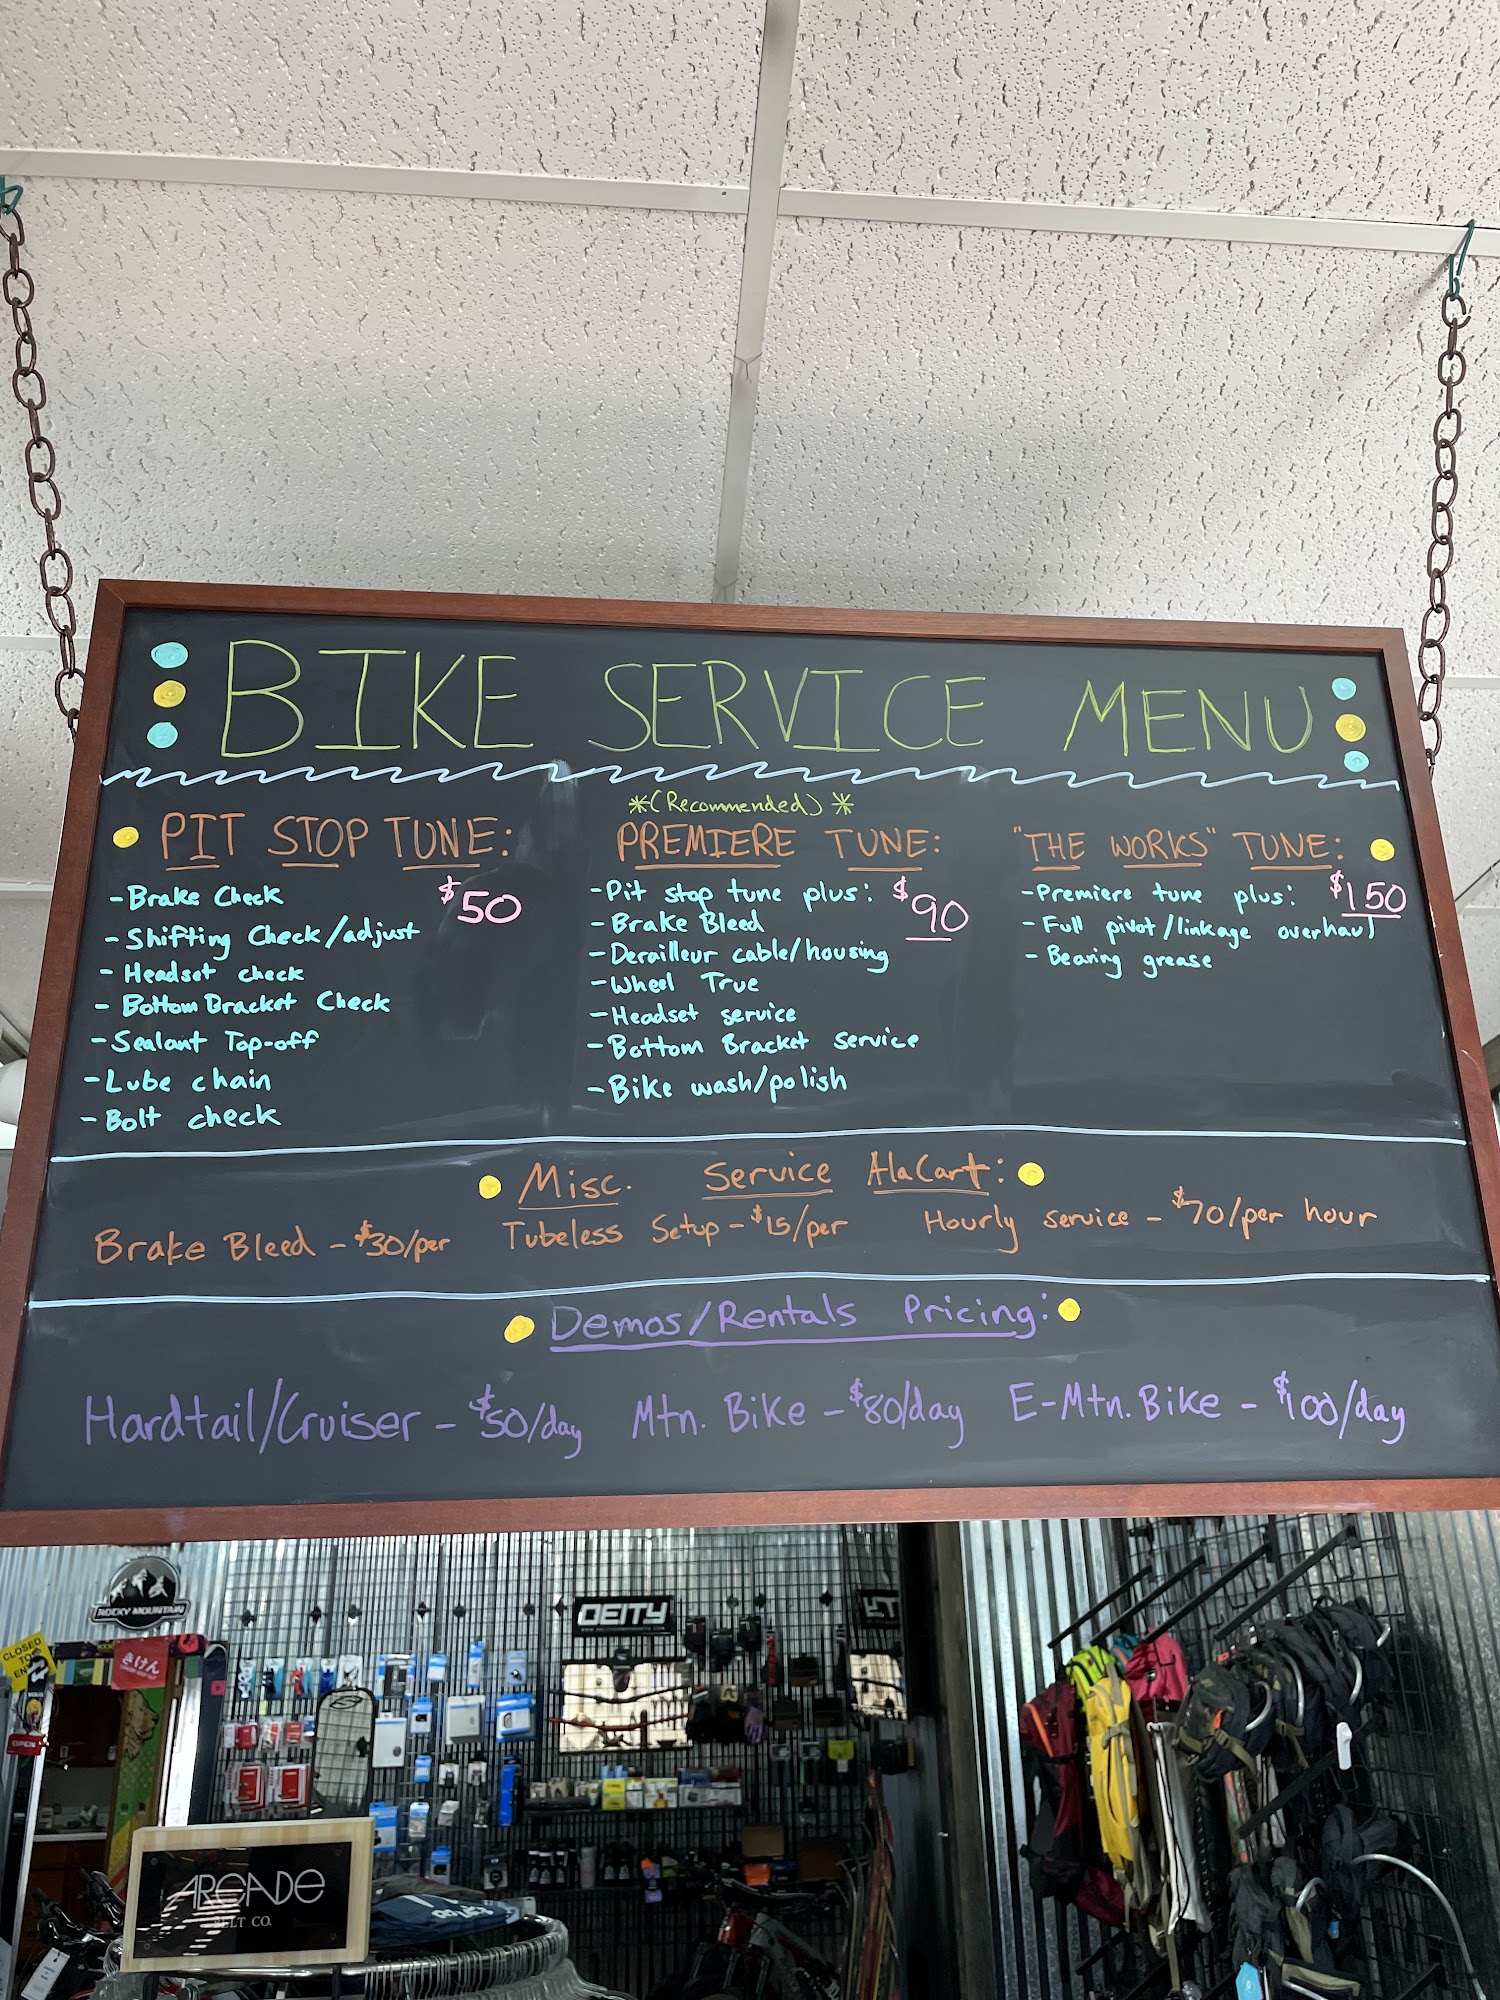 BIKE SERVICE MENU
*(Recommended)*
PIT STOP TUNE:
$50
-Brake Check
-Shifting Check/adjust
-Headset check
-Bottom Bracket Check
-Sealant Top-off
-Lube chain
-Bolt check
PREMIERE TUNE:
-Pit stop tune plus: $90
-Brake Bleed
-Derailleur cable/housing
-Wheel True
-Headset service
-Bottom Bracket service
-Bike wash/polish
"THE WORKS" TUNE:
-Premiere tune plus: $150
-Full pivot/linkage overhaul
-Bearing grease
Misc. Service AlaCart:
Brake Bleed - $30/per
Tubeless Setup - $15/per
Hourly service - $70/per hour
Demos/Rentals Pricing:
Hardtail/Cruiser - $50/day
Mtn. Bike - $80/day
E-Mtn. Bike - $100/day
ROCKY MOUNTAIN
DEITY
CLOSED
TO
きけん
OPEN
ARCADE
BELT CO.